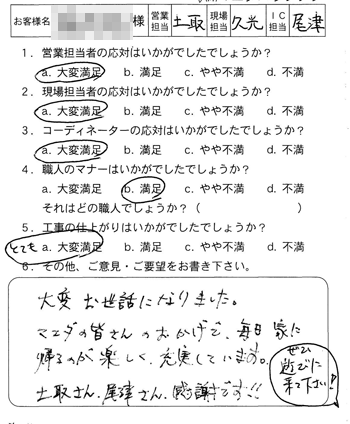 お客様名 様 営業担当 土取 現場担当 久光 IC担当 尾津
1．営業担当者の応対はいかがでしたでしょうか？
a. 大変満足 b. 満足 c. やや不満 d. 不満
2．現場担当者の応対はいかがでしたでしょうか？
a. 大変満足 b. 満足 c. やや不満 d. 不満
3．コーディネーターの応対はいかがでしたでしょうか？
a. 大変満足 b. 満足 c. やや不満 d. 不満
4．職人のマナーはいかがでしたでしょうか？
a. 大変満足 b. 満足 c. やや不満 d. 不満
それはどの職人でしょうか？（ ）
5．工事の仕上がりはいかがでしたでしょうか？
とても a. 大変満足 b. 満足 c. やや不満 d. 不満
6．その他、ご意見・ご要望をお書き下さい。
大変お世話になりました。
マエダの皆さんのおかげで、毎日家に
帰るのが楽しく、充実しています。
土取さん、尾津さん、感謝です!!
ぜひ
遊びに
来て下さい!!